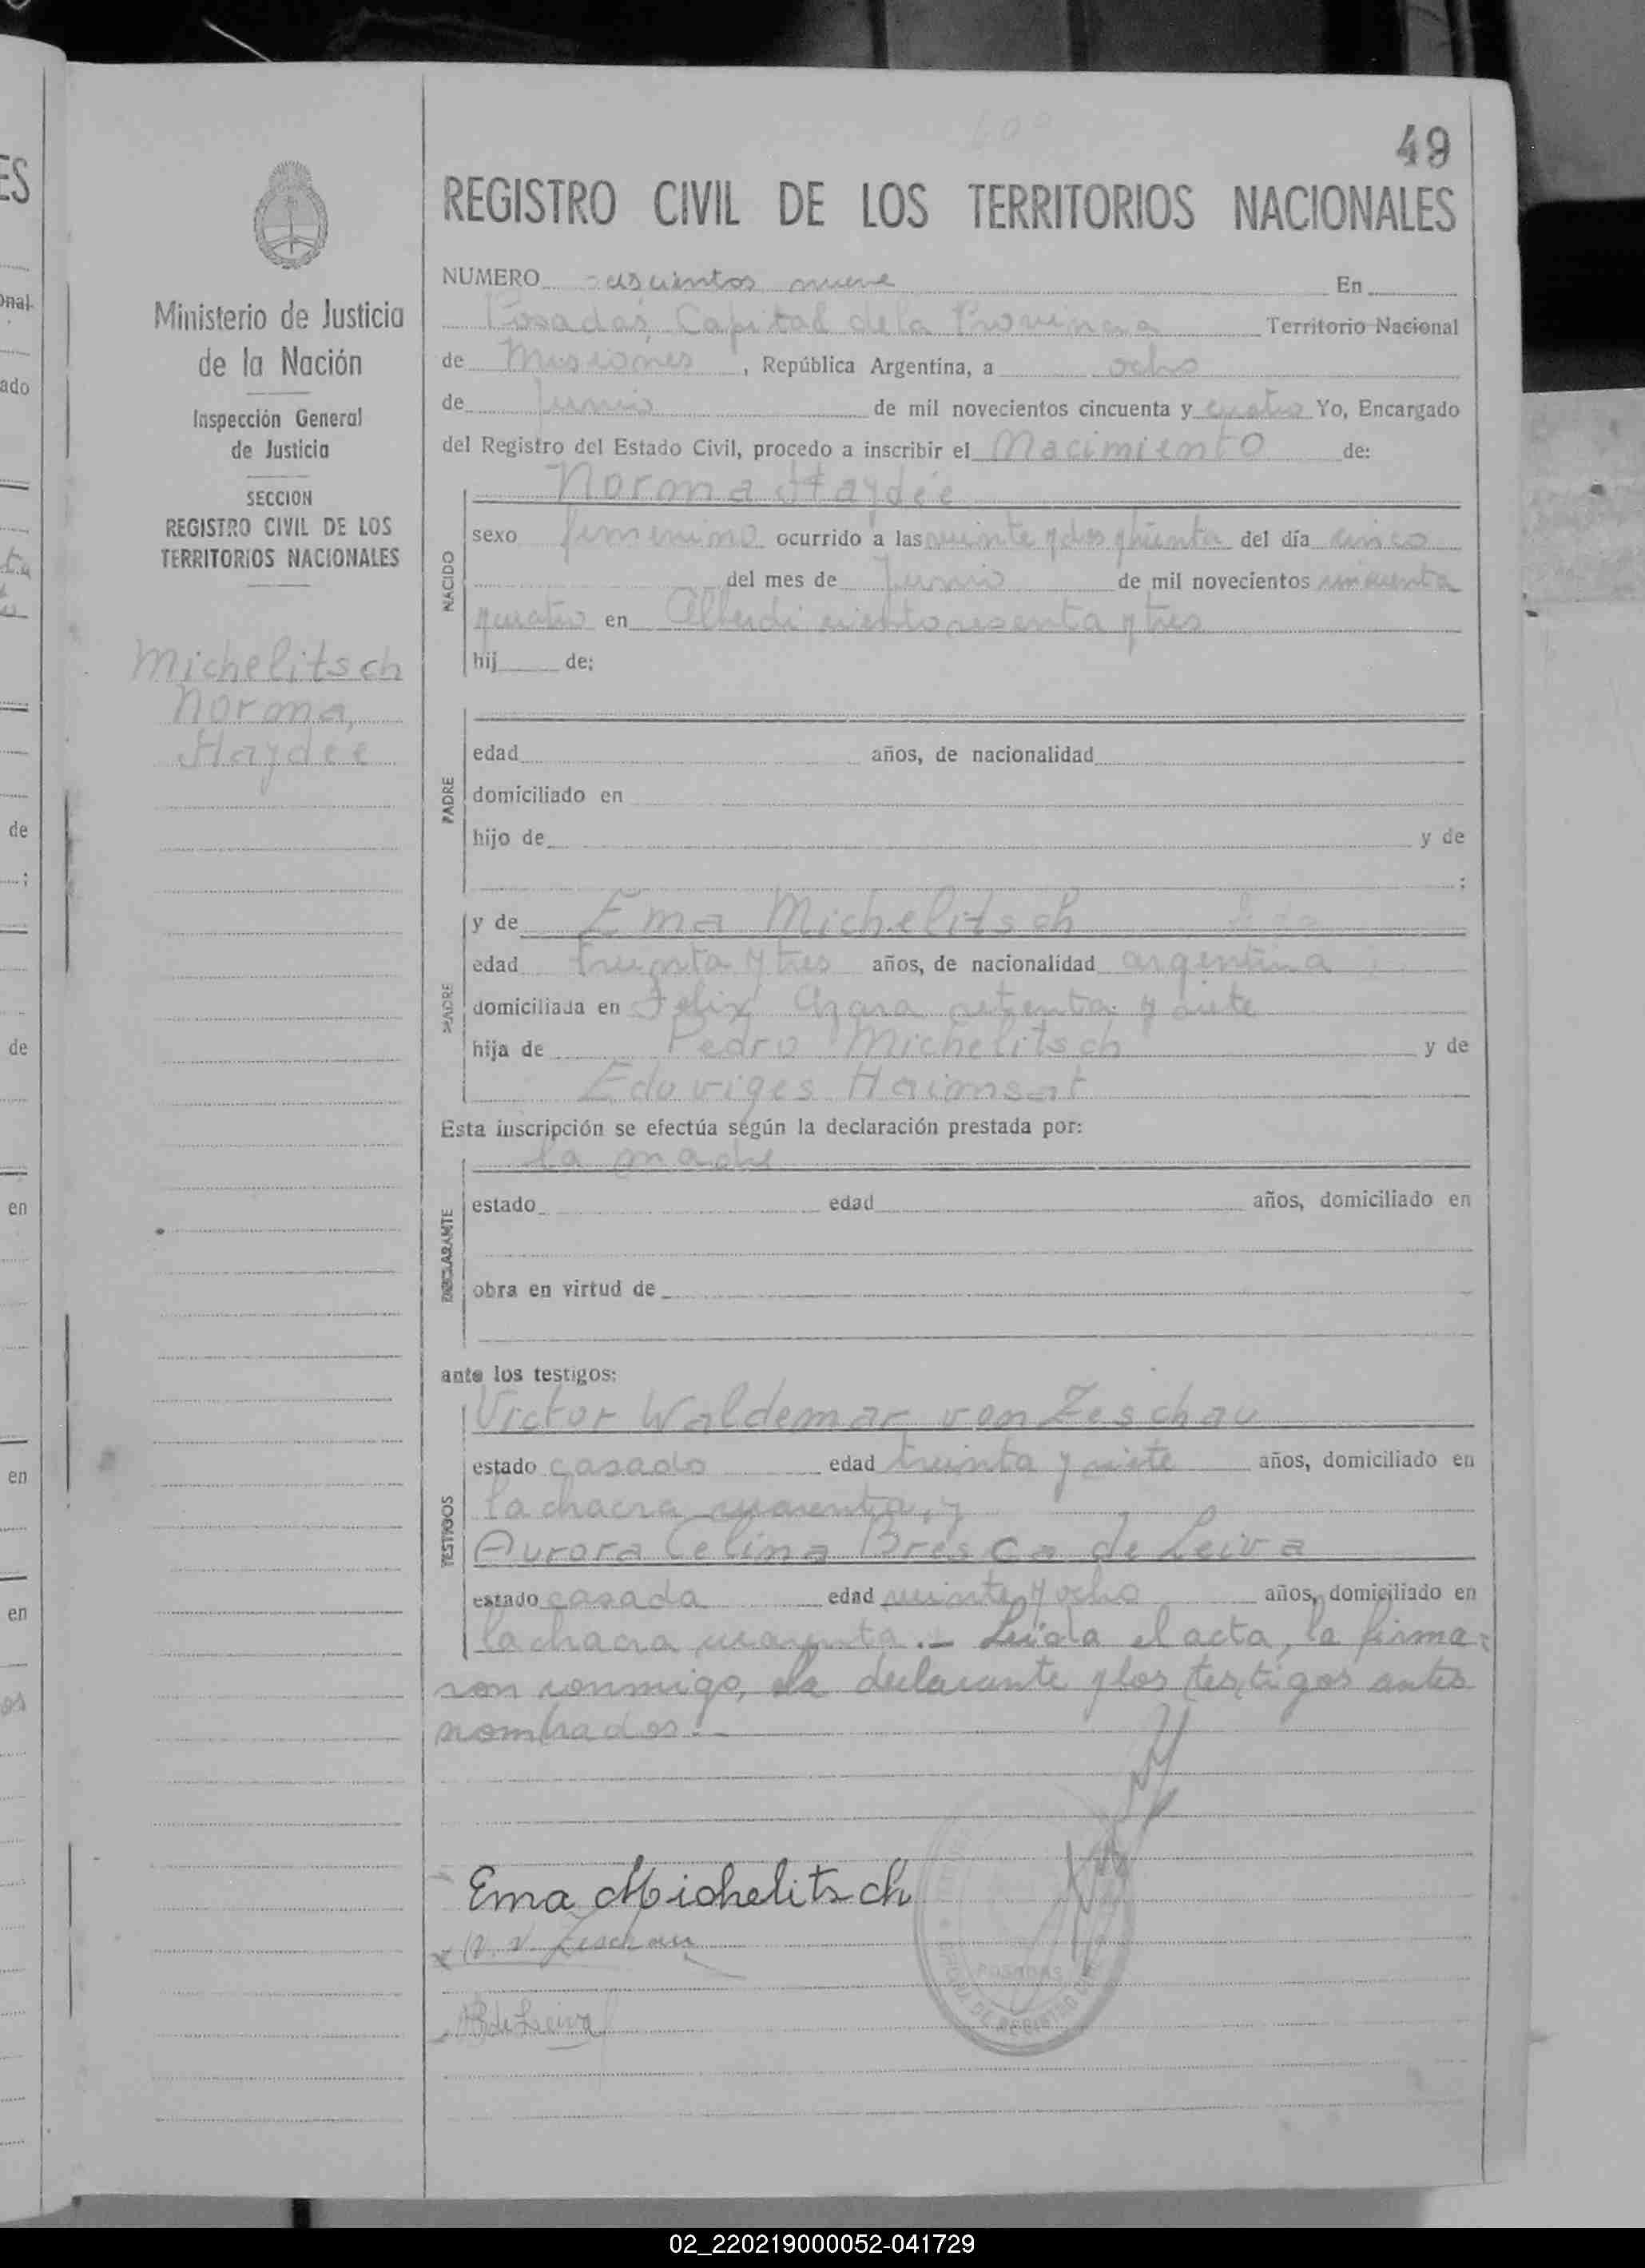 49
REGISTRO CIVIL DE LOS TERRITORIOS NACIONALES
Ministerio de Justicia
de la Nación
Inspección General
de Justicia
SECCION
REGISTRO CIVIL DE LOS
TERRITORIOS NACIONALES
Michelitsch
Norma,
Haydée
NUMERO nueve En
Posadas, Capital de la Provincia Territorio Nacional
de Misiones, República Argentina, a ocho
de Junio de mil novecientos cincuenta y cuatro Yo, Encargado
del Registro del Estado Civil, procedo a inscribir el Nacimiento de:
Norma Haydée
NACIDO
sexo femenino ocurrido a las veinte y dos y treinta del día cinco
del mes de Junio de mil novecientos cincuenta
y cuatro en Alberdi ciento sesenta y tres
hij de:
PADRE
edad años, de nacionalidad
domiciliado en
hijo de y de
;
y de Ema Michelitsch
MADRE
edad treinta y tres años, de nacionalidad argentina
domiciliada en Felix Azara setenta y siete
hija de Pedro Michelitsch y de
Eduviges Haimsat
Esta inscripción se efectúa según la declaración prestada por:
la madre
DECLARANTE
estado edad años, domiciliado en
obra en virtud de
ante los testigos:
Victor Waldemar von Zeschau
TESTIGOS
estado casado edad treinta y siete años, domiciliado en
la chacra cuarenta, y
Aurora Celina Bresca de Leiva
estado casada edad veinte y ocho años, domiciliado en
la chacra cuarenta.- Leída el acta, la firma-
ron conmigo, la declarante y los testigos antes
nombrados.-
Ema Michelitsch
v. Zeschau
B de Leiva
POSADAS
02_220219000052-041729